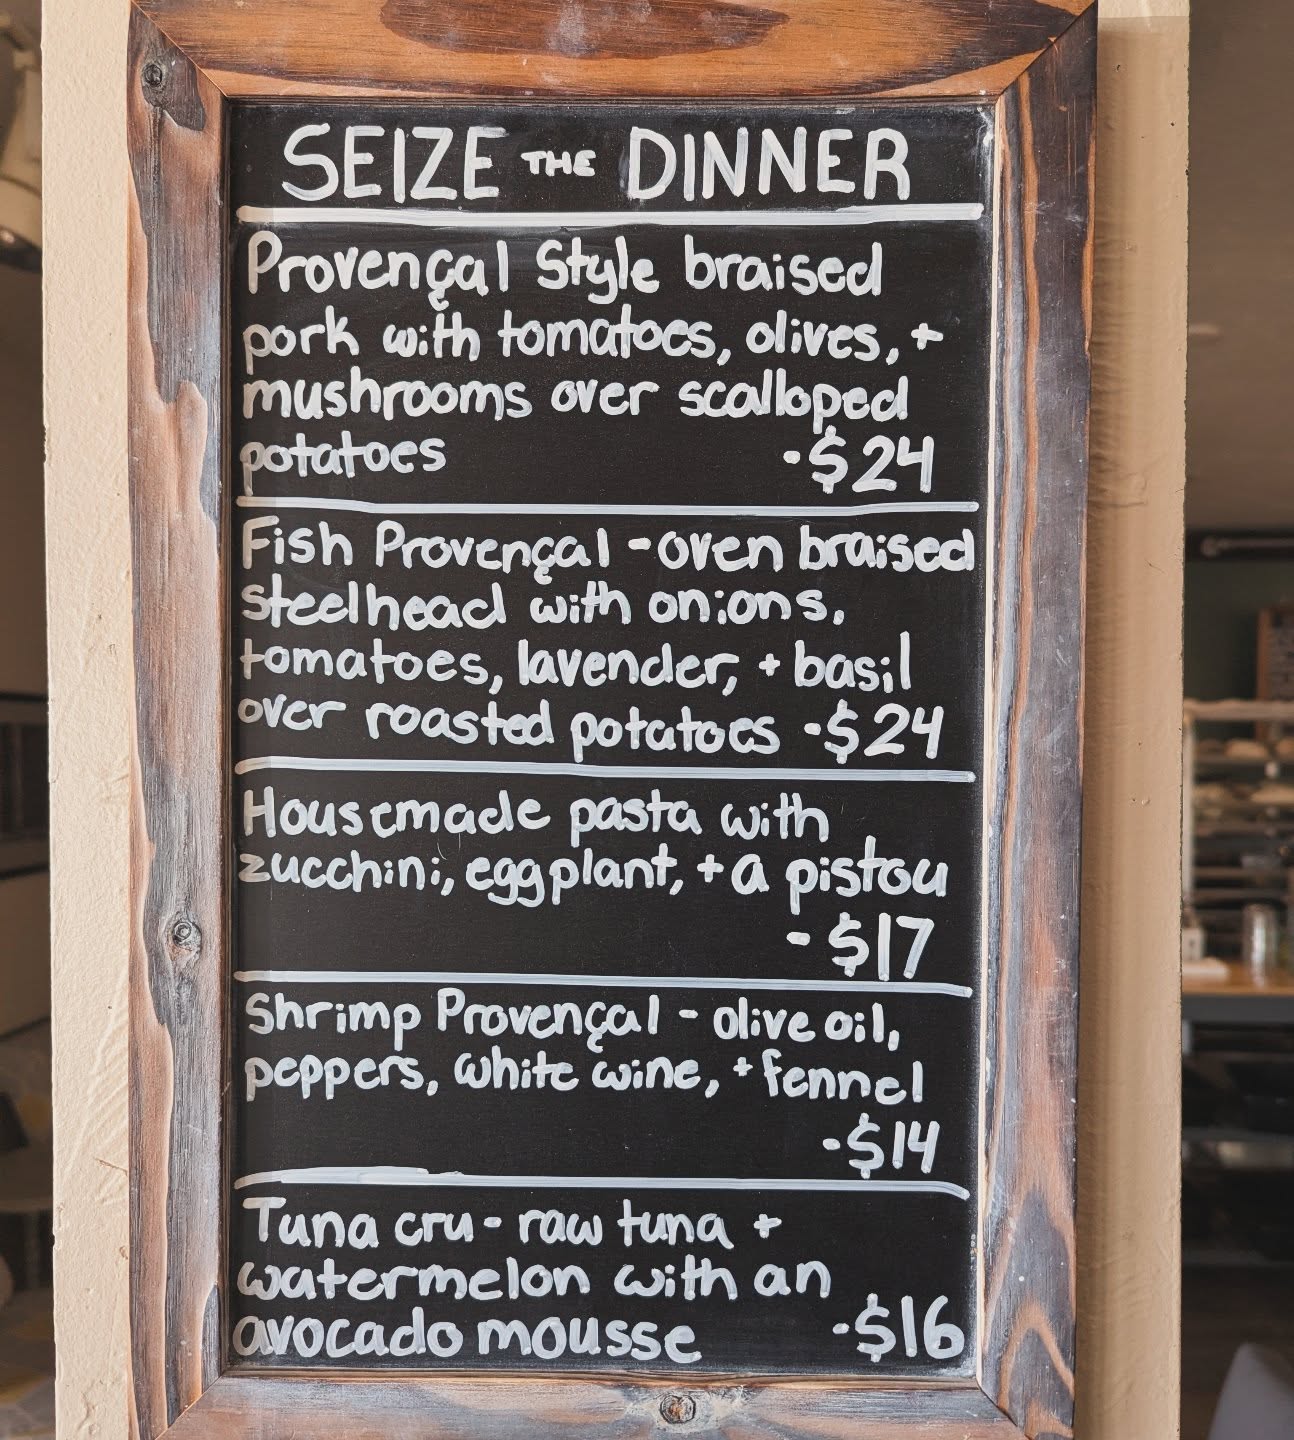 SEIZE THE DINNER
Provençal Style braised
pork with tomatoes, olives, +
mushrooms over scalloped
potatoes -$24
Fish Provençal - oven braised
steelhead with onions,
tomatoes, lavender, + basil
over roasted potatoes -$24
Housemade pasta with
zucchini, eggplant, + a pistou
- $17
Shrimp Provençal - olive oil,
peppers, white wine, + fennel
-$14
Tuna cru - raw tuna +
watermelon with an
avocado mousse -$16